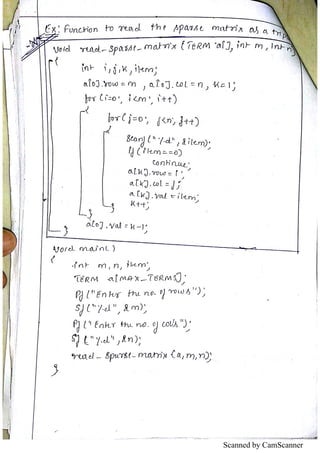 Ex: Function to read the sparse matrix as a trip
void read-sparse-matrix (TERM a[], int m, int n)
{
int i, j, k, item;
a[0].row = m , a[0].col = n, k=1;
for (i=0; i<m; i++)
{
for (j=0; j<n; j++)
{
Scanf ("%d", &item);
If (item==0)
continue;
a[k].row = i;
a[k].col = j;
a[k].val = item;
k++;
}
}
a[0].val = k-1;
}
void main( )
{
int m, n, item;
TERM a[MAX_TERMS];
Pf ("Enter the no. of rows");
Sf ("%d", &m);
Pf ("Enter the no. of cols");
Sf ("%d", &n);
read - sparse-matrix (a,m,n);
}
Scanned by CamScanner